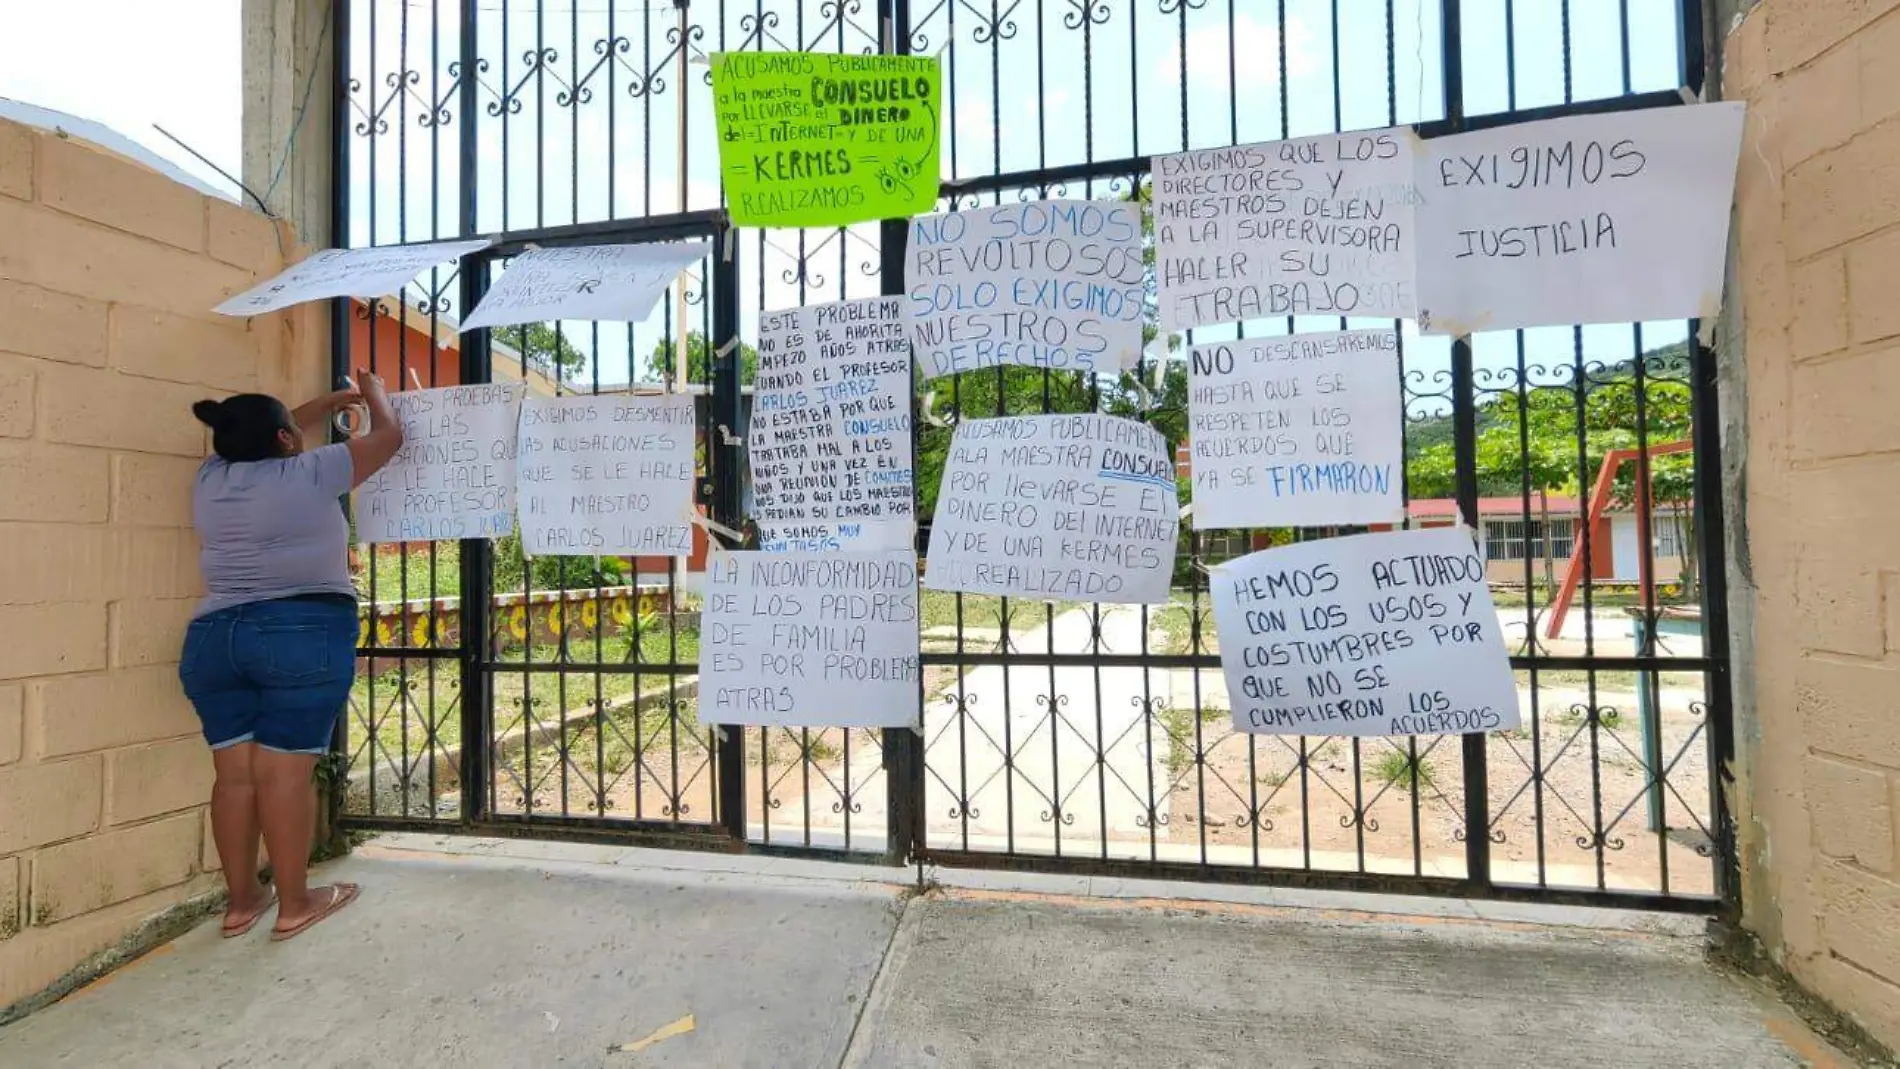 ACUSAMOS PUBLICAMENTE
a la maestra CONSUELO
POR LLEVARSE el DINERO
del =INTERNET= Y DE UNA
= KERMES =
REALIZAMOS
NUESTRA
PRUEBAS
LAS
QUE
SE LE HACE
AL PROFESOR
CARLOS JUAREZ
EXIGIMOS DESMENTIR
LAS ACUSACIONES
QUE SE LE HACE
AL MAESTRO
CARLOS JUAREZ
ESTE PROBLEMA
NO ES DE AHORITA
EMPEZO AÑOS ATRAS
CUANDO EL PROFESOR
CARLOS JUAREZ
NO ESTABA POR QUE
LA MAESTRA CONSUELO
TRATABA MAL A LOS
NIÑOS Y UNA VEZ EN
UNA REUNION DE COMITES
NOS DIJO QUE LOS MAESTROS
PEDIAN SU CAMBIO POR
QUE SOMOS MUY
LA INCONFORMIDAD
DE LOS PADRES
DE FAMILIA
ES POR PROBLEMAS
ATRAS
NO SOMOS
REVOLTOSOS
SOLO EXIGIMOS
NUESTROS
DERECHOS
ACUSAMOS PUBLICAMENTE
A LA MAESTRA CONSUELO
POR llEVARSE EL
DINERO DEl INTERNET
Y DE UNA KERMES
REALIZADO
EXIGIMOS QUE LOS
DIRECTORES Y
MAESTROS DEJEN
A LA SUPERVISORA
HACER SU
TRABAJO
EXIGIMOS
JUSTICIA
NO DESCANSAREMOS
HASTA QUE SE
RESPETEN LOS
ACUERDOS QUE
YA SE FIRMARON
HEMOS ACTUADO
CON LOS USOS Y
COSTUMBRES POR
QUE NO SE
CUMPLIERON LOS
ACUERDOS